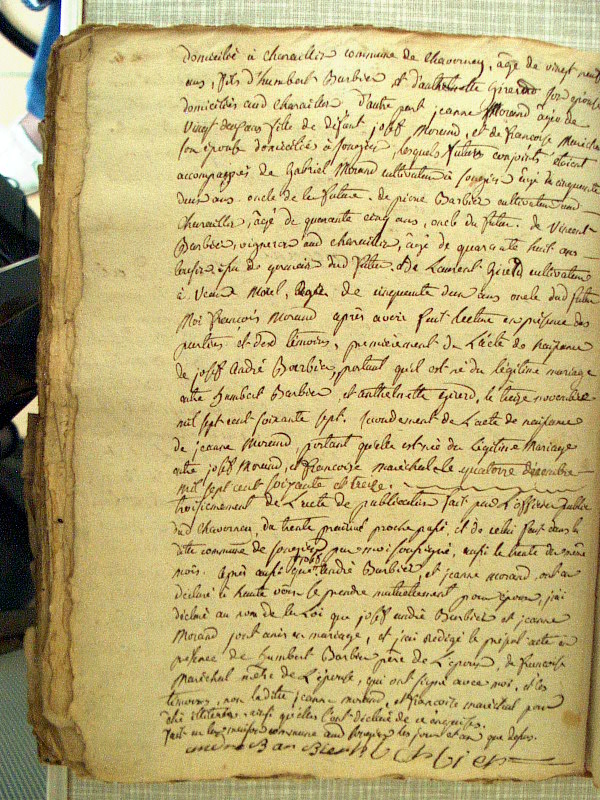 domicilié à charaillin commune de Chavornay, âgé de vingt neuf
ans, fils d'humbert Barbier et d'anthelmette Girerd son épouse
domiciliés aud charaillin d'autre part jeanne Morand âgée de
vingt deux ans fille de défunt joseph Morand, et de francoise Maréchal
son épouse domiciliée à songieu, lesquels futurs conjoints étoient
accompagnés de Gabriel Morand cultivateur à songieu âgé de cinquante
deux ans oncle de la future, de pierre Barbier cultivateur aud
charaillin, âgé de quarante cinq ans, oncle du futur, de Vincent
Barbier, vigneron aud charaillin, âgé de quarante huit ans
cousin issu de germain dud futur et de Laurent Girerd cultivateur
à Morel, âgé de cinquante deux ans oncle dud futur
Moi francois Morand après avoir fait lecture en présence des
parties et desd témoins, premièrement de L'acte de naissance
de joseph André Barbier, portant qu'il est né du légitime mariage
entre humbert Barbier et anthelmette girerd, le treize novembre
mil sept cent soixante sept. secondement de L'acte de naissance
de jeanne Morand, portant qu'elle est née du Légitime Mariage
entre joseph Morand, et francoise maréchal le quatorze décembre
mil sept cent soixante et treize.
troisiemement de L'acte de publication fait par L'officier public
dud Chavornay, du trente prairial proche passé, et de celui fait dans la
dite commune de songieu par moi soussigné, aussi le trente du même
mois. après aussi que joseph andré Barbier, et jeanne morand, ont eu
déclaré à haute voix se prendre mutuellement pour époux, j'ai
déclaré au nom de la Loi que joseph andré Barbier et jeanne
Morand sont unis en mariage, et j'ai rédigé le présent acte en
présence de humbert Barbier père de L'époux, de francoise
Maréchal mère de L'épouse, qui ont signé avec moi, et les
témoins, non ladite jeanne morand, et francoise maréchal pour
être illitérées, ainsi qu'elles l'ont déclaré de ce enquises.
fait en la maison commune aud songieu les jour et an que dessus.
andre Barbier h barbier